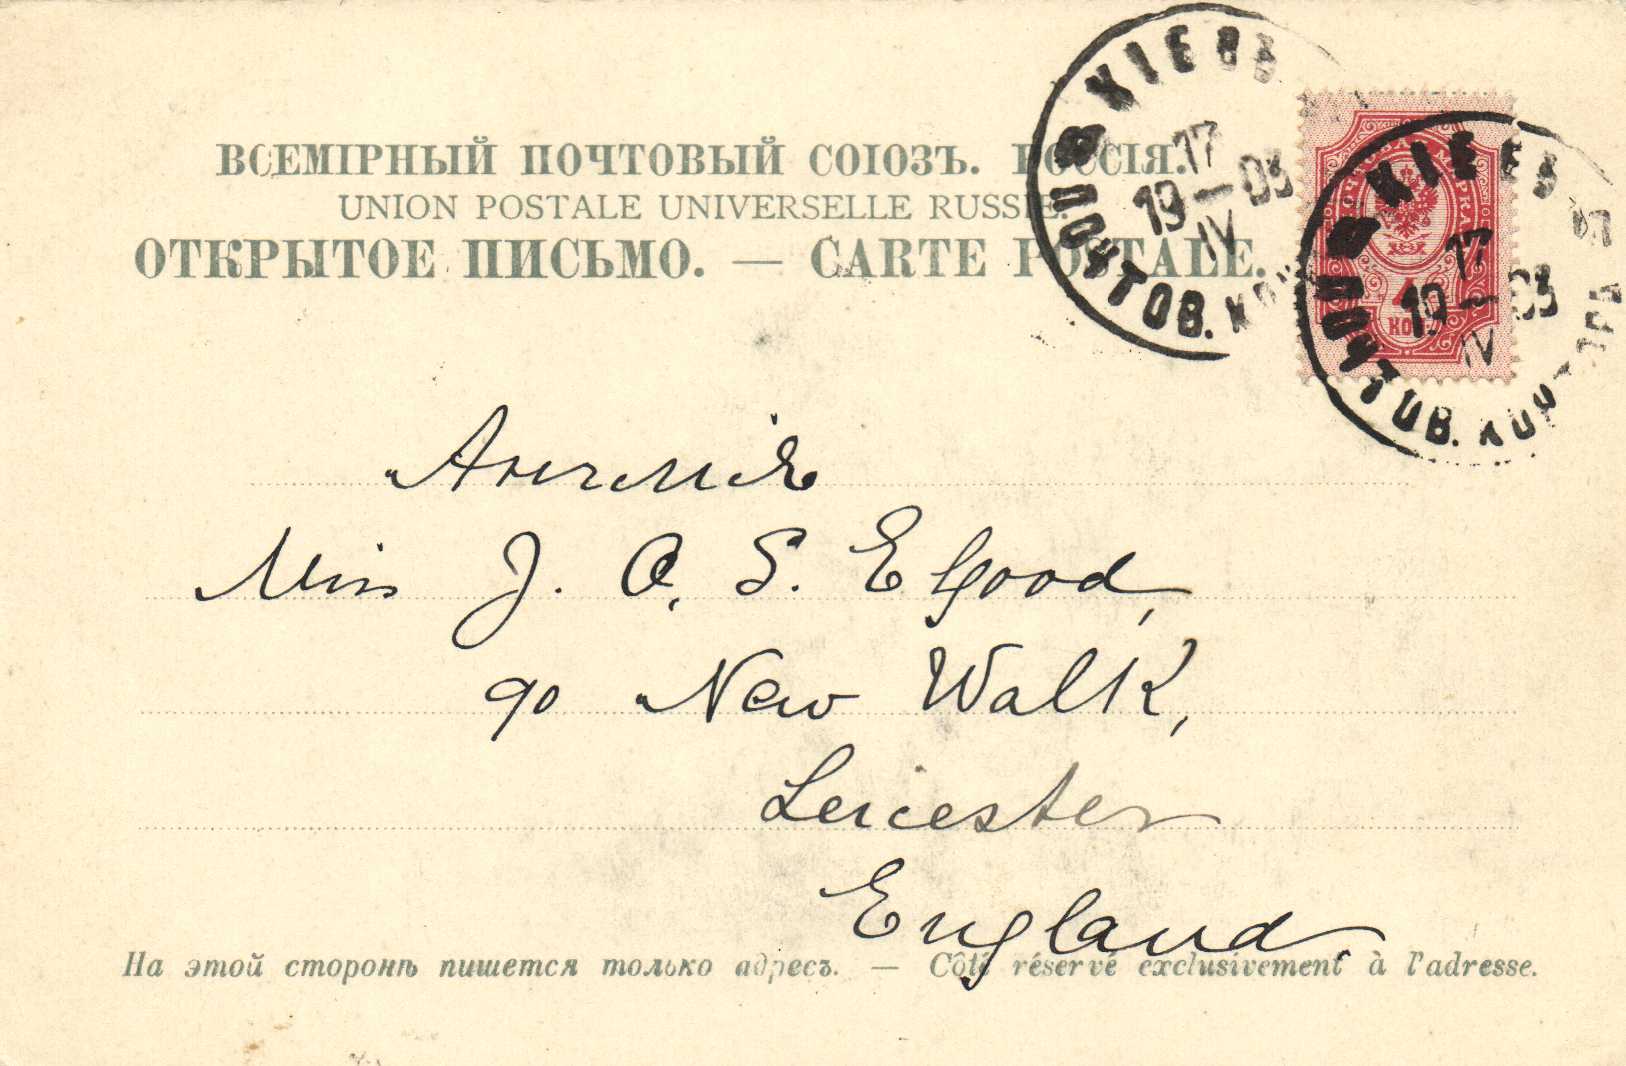 ВСЕМІРНЫЙ ПОЧТОВЫЙ СОЮЗЪ. РОССІЯ.
UNION POSTALE UNIVERSELLE RUSSIE.
ОТКРЫТОЕ ПИСЬМО. — CARTE POSTALE.
КІЕВЪ
17
19—03
IV
ПОЧТОВ.
ПОЧТОВАЯ МАРКА
4
КОП.
КІЕВЪ
17
19—03
IV
ПОЧТОВ. КОНТОРА
Англия
Miss J. O. S. Elgood,
90 New Walk,
Leicester
England
На этой сторонѣ пишется только адресъ. — Côté réservé exclusivement à l'adresse.